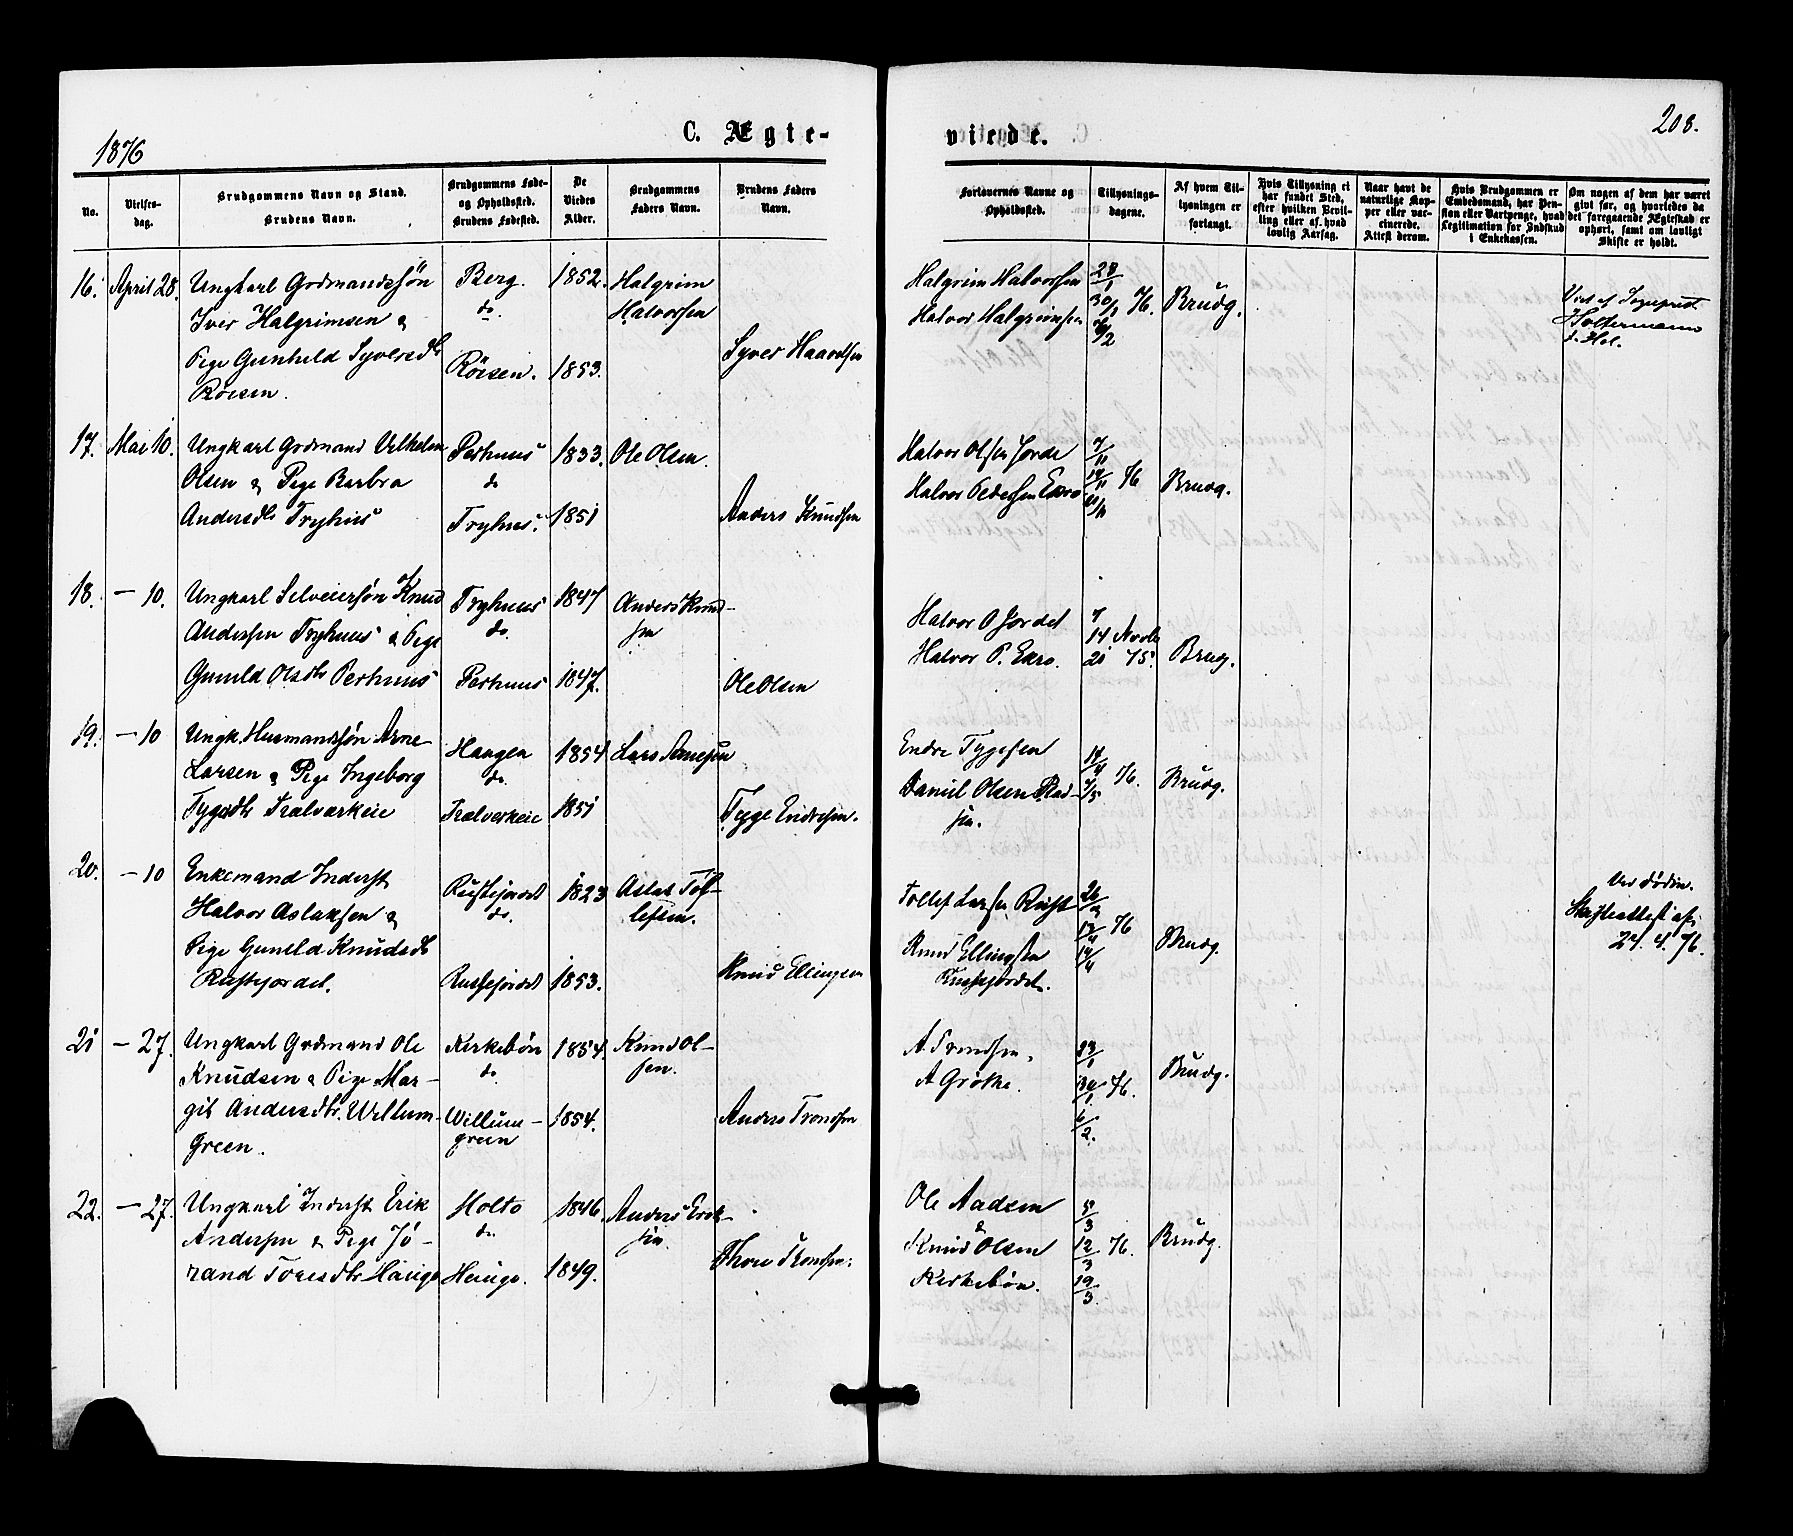 1876
C. Ægte-
viede.
208.
No.
Vielses-
dag.
Brudgommens Navn og Stand.
Brudens Navn.
Brudgommens Føde-
og Opholdssted.
Brudens Fødested.
De
Viedes
Alder.
Brudgommens
Faders Navn.
Brudens Faders
Navn.
Forlovernes Navne og
Opholdssted.
Tillysnings-
dagene.
Af hvem Til-
lysningen er
forlangt.
Hvis Tillysning ei
har fundet Sted,
efter hvilken Bevil-
ling eller af hvad
lovlig Aarsag.
Naar havt de
naturlige Kop-
per eller vac-
cinerede.
Attest derom.
Hvis Brudgommen er
Embedsmand, har Pen-
sion eller Vartpenge, hvad
Legitimation for Indskud
i Enkekassen.
Om nogen af dem har været
gift før, og hvorledes da
det foregaaende Ægteskab er
ophørt, samt om lovligt
Skifte er holdt.
16. April 28. Ungkarl Grdmandssøn
Iver Halgrimsen &
Pige Gunhild Syversdtr
Röisen.
Berg.
do.
Röisen.
1852.
1853.
Halgrim
Halvorsen
Syver Haavelsen
Halgrim Halvorsen
Halvor Halgrimsen
23/1
30/1 76.
6/2
Brudg.
Viet af Sogneprest
f. Hol.
17. Mai 10. Ungkarl Grdmand Vilhelm
Olsen & Pige Barbro
Andersdtr Tryhus
Perhuus
do
Tryhus.
1833.
1851
Ole Olsen.
Anders Knudsen
Halvor Olsen Jorde
Halvor Pedersen Exro
7/11
14/11 76
21/11
Brudg.
18. – 10. Ungkarl Selveiersøn Knud
Andersen Tryhuus & Pige
Gunild Olsdtr Perhuus
Tryhuus
do.
Perhuus
1847
1847.
Anders Knud-
sen
Ole Olsen
Halvor O Jordet
Halvor P. Exro.
7
14 Novb
21 75.
Brudg.
19. – 10 Ungk. Husmandssøn Arne
Larsen & Pige Ingeborg
Tygesdtr Trælværkeie
Haagen
do.
Trælverkeie
1854
1851
Lars Arnesen
Tyge Endresen.
Endre Tygesen
Daniel Olsen
14/4 76.
7/5
Brudg.
20. – 10 Enkemand Inderst
Halvor Aslaksen &
Pige Gunild Knudsdtr
Rustejordet.
Rustejordet
do.
Rustejordet
1823
1853.
Aslak Tol-
lefsen.
Knud Ellingsen
Tollef Larsen Rust
Knud Ellingsen
Rustejordet.
26/3
17/4 76
Brudg.
Ved Døden.
Skifteattest af
24. 4. 76.
21 – 27. Ungkarl Grdmand Ole
Knudsen & Pige Mar-
git Andersdtr. Willum-
Green.
Kirkebön
do.
Willum-
green
1854.
1854.
Knud Ol-
sen.
Anders Trondsen
A. Trondsen.
A Gröthe.
23/1
30/1 76.
6/2.
Brudg.
22. – 27. Ungkarl Inderst Erik
Andersen & Pige Jö-
rand Toresdtr Hauge
Holto
do.
Hauge.
1846.
1849.
Anders Erik-
sen.
Thore Trondsen.
Ole Aadsen
&
Knud Olsen
Kirkebön.
5/3
12/3 76.
19/3.
Brudg.